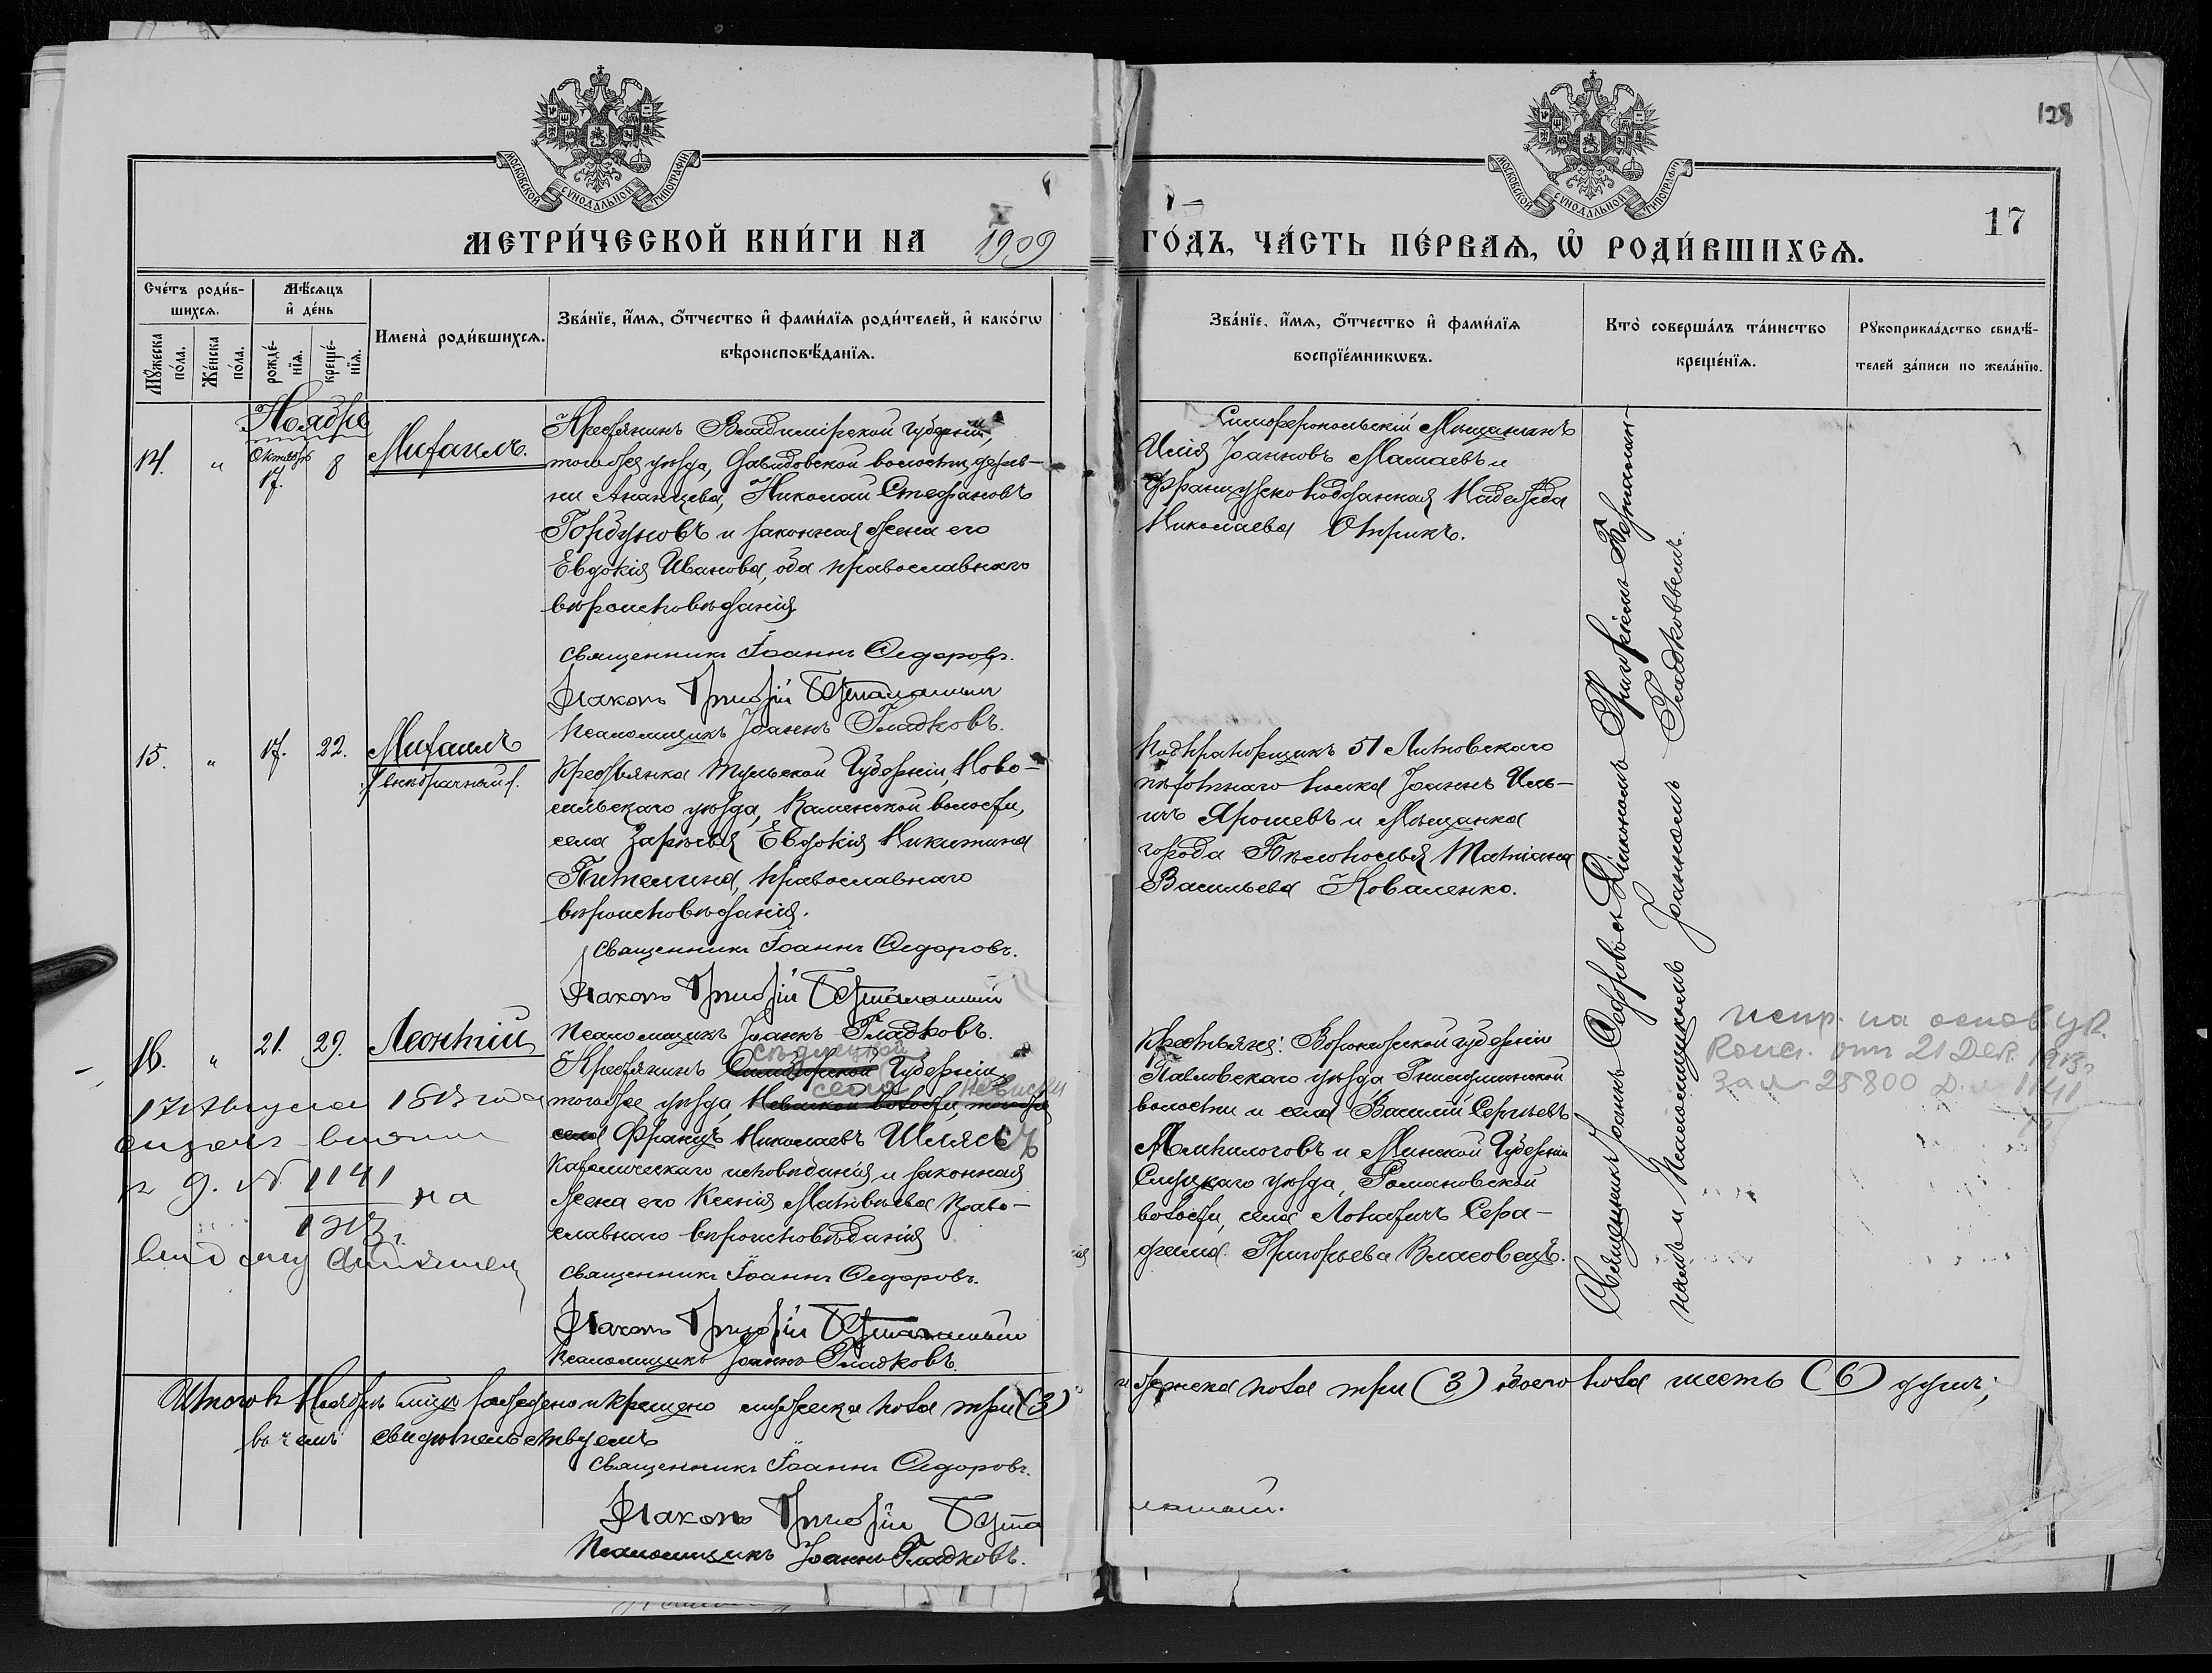 128
17
МОСКОВСКОЙ СѴНОДАЛЬНОЙ ТИПОГРАФІИ
МОСКОВСКОЙ СѴНОДАЛЬНОЙ ТИПОГРАФІИ
МЕТРИ́ЧЕСКОЙ КНИ́ГИ НА 1909 ГО́ДЪ, ЧА́СТЬ ПЕ́РВАѦ, Ѽ РОДИ́ВШИХСѦ.
Сче́тъ роди́в-
шихсѧ.
Мꙋ́жеска по́ла.
Же́нска по́ла.
Мѣ́сѧцъ
и҆ де́нь
рожде́-
нїѧ.
креще́-
нїѧ.
Имена̀ роди́вшихсѧ.
Зва́нїе, и҆́мѧ, ѻ҆́тчество и҆ фами́лїѧ роди́телей, и҆ како́гѡ
вѣроисповѣ́данїѧ.
Зва́нїе, и҆́мѧ, ѻ҆́тчество и҆ фами́лїѧ
воспрїе́мникѡвъ.
Кто̀ соверша́лъ та́инство
креще́нїѧ.
Рꙋкоприкла́дство свидѣ́-
телей за́писи по жела́нїю.
Ноябрь
14. " Октябрь 17. 8 Михаилъ.
Крестьянинъ Владимірской губерніи,
тогоже уѣзда, Давидовской волости, дерев-
ни Ананьева, Николай Стефановъ
Горбуновъ и законная жена его
Евдокія Иванова, оба православнаго
вѣроисповѣданія
Священникъ Іоаннъ Ѳедоровъ.
Діаконъ Григорій
Псаломщикъ Іоаннъ Гладковъ.
Симферопольскій Мѣщанинъ
Илія Іоанновъ Мамаевъ и
Французскоподданная Надежда
Николаева Отрикъ.
15. " 17. 22. Михаилъ
/внѣбрачный/.
Крестьянка Тульской Губерніи, Ново-
сильскаго уѣзда, Каменской волости,
села Зарѣчья Евдокія Никитина
Пителина, православнаго
вѣроисповѣданія.
Священникъ Іоаннъ Ѳедоровъ.
Діаконъ Григорій
Псаломщикъ Іоаннъ Гладковъ.
Подпрапорщикъ 51 Литовскаго
пѣхотнаго полка Іоаннъ Иль-
ичъ Ярошевъ и Мѣщанка
города Бѣлополья Татіана
Васильева Коваленко.
16. " 21. 29. Леонтій
Крестьянинъ Симбирской Губерніи
тогоже уѣзда, села
села Францъ Николаевъ Шлясъ
Католическаго исповѣданія и законная
жена его Ксенія Матвѣева Право-
славнаго вѣроисповѣданія
Священникъ Іоаннъ Ѳедоровъ.
Діаконъ Григорій
Псаломщикъ Іоаннъ Гладковъ.
17 Августа 1913 года
№ 1141
1913 г. на
Крестьяне: Воронежской губерніи
Павловскаго уѣзда
волости и села Василій Сергѣевъ
и Минской Губерніи
Слуцкаго уѣзда, Романовской
волости, села Лопатичъ Сера-
фима Григорьева Власовецъ.
Священникъ Іоаннъ Ѳедоровъ съ Діакономъ Григоріемъ
и Псаломщикомъ Іоанномъ Гладковымъ.
испр. на основ. ук.
Конс. отъ 21 Дек. 1913 г.
за № 28800 Д. № 1141
Итого въ Ноябрѣ мѣсяцѣ рождено и крещено мужеска пола три (3) и женска пола три (3) обоего пола шесть (6) душъ;
въ чемъ свидѣтельствуемъ
Священникъ Іоаннъ Ѳедоровъ.
Діаконъ Григорій
Псаломщикъ Іоаннъ Гладковъ.